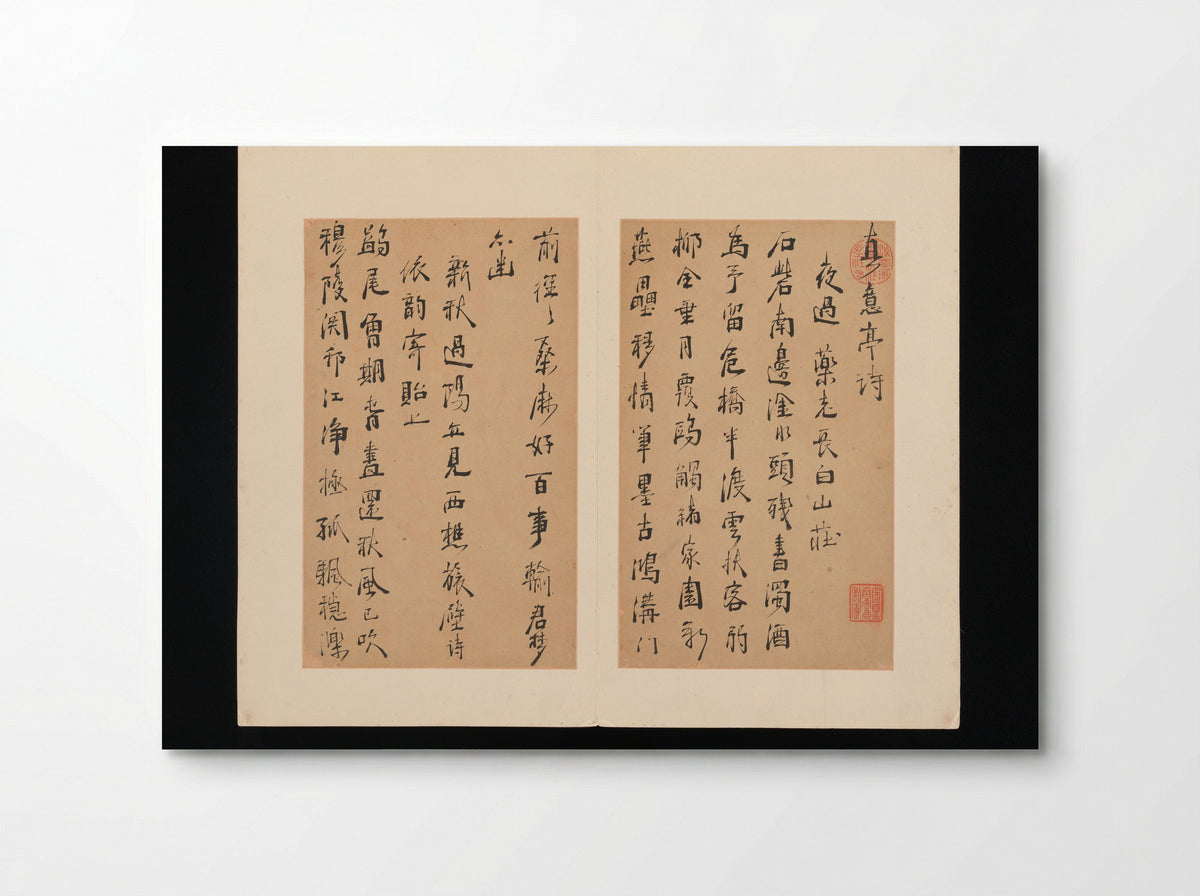 真意亭诗
夜過 藥老長白山莊
石砦南邊淦水頭殘書濁酒
為予留危橋半渡雲扶客弱
柳全垂月覆鷗觸緒家園新
燕壘移情筆墨古鴻溝门
前徑々桑麻好百事輸君梦
亦幽
新秋過陽立見西樵旅壁诗
依韵寄貽上
鷁尾曾期青畫還秋風已吹
穆陵関邗江净極孤颿穏濼